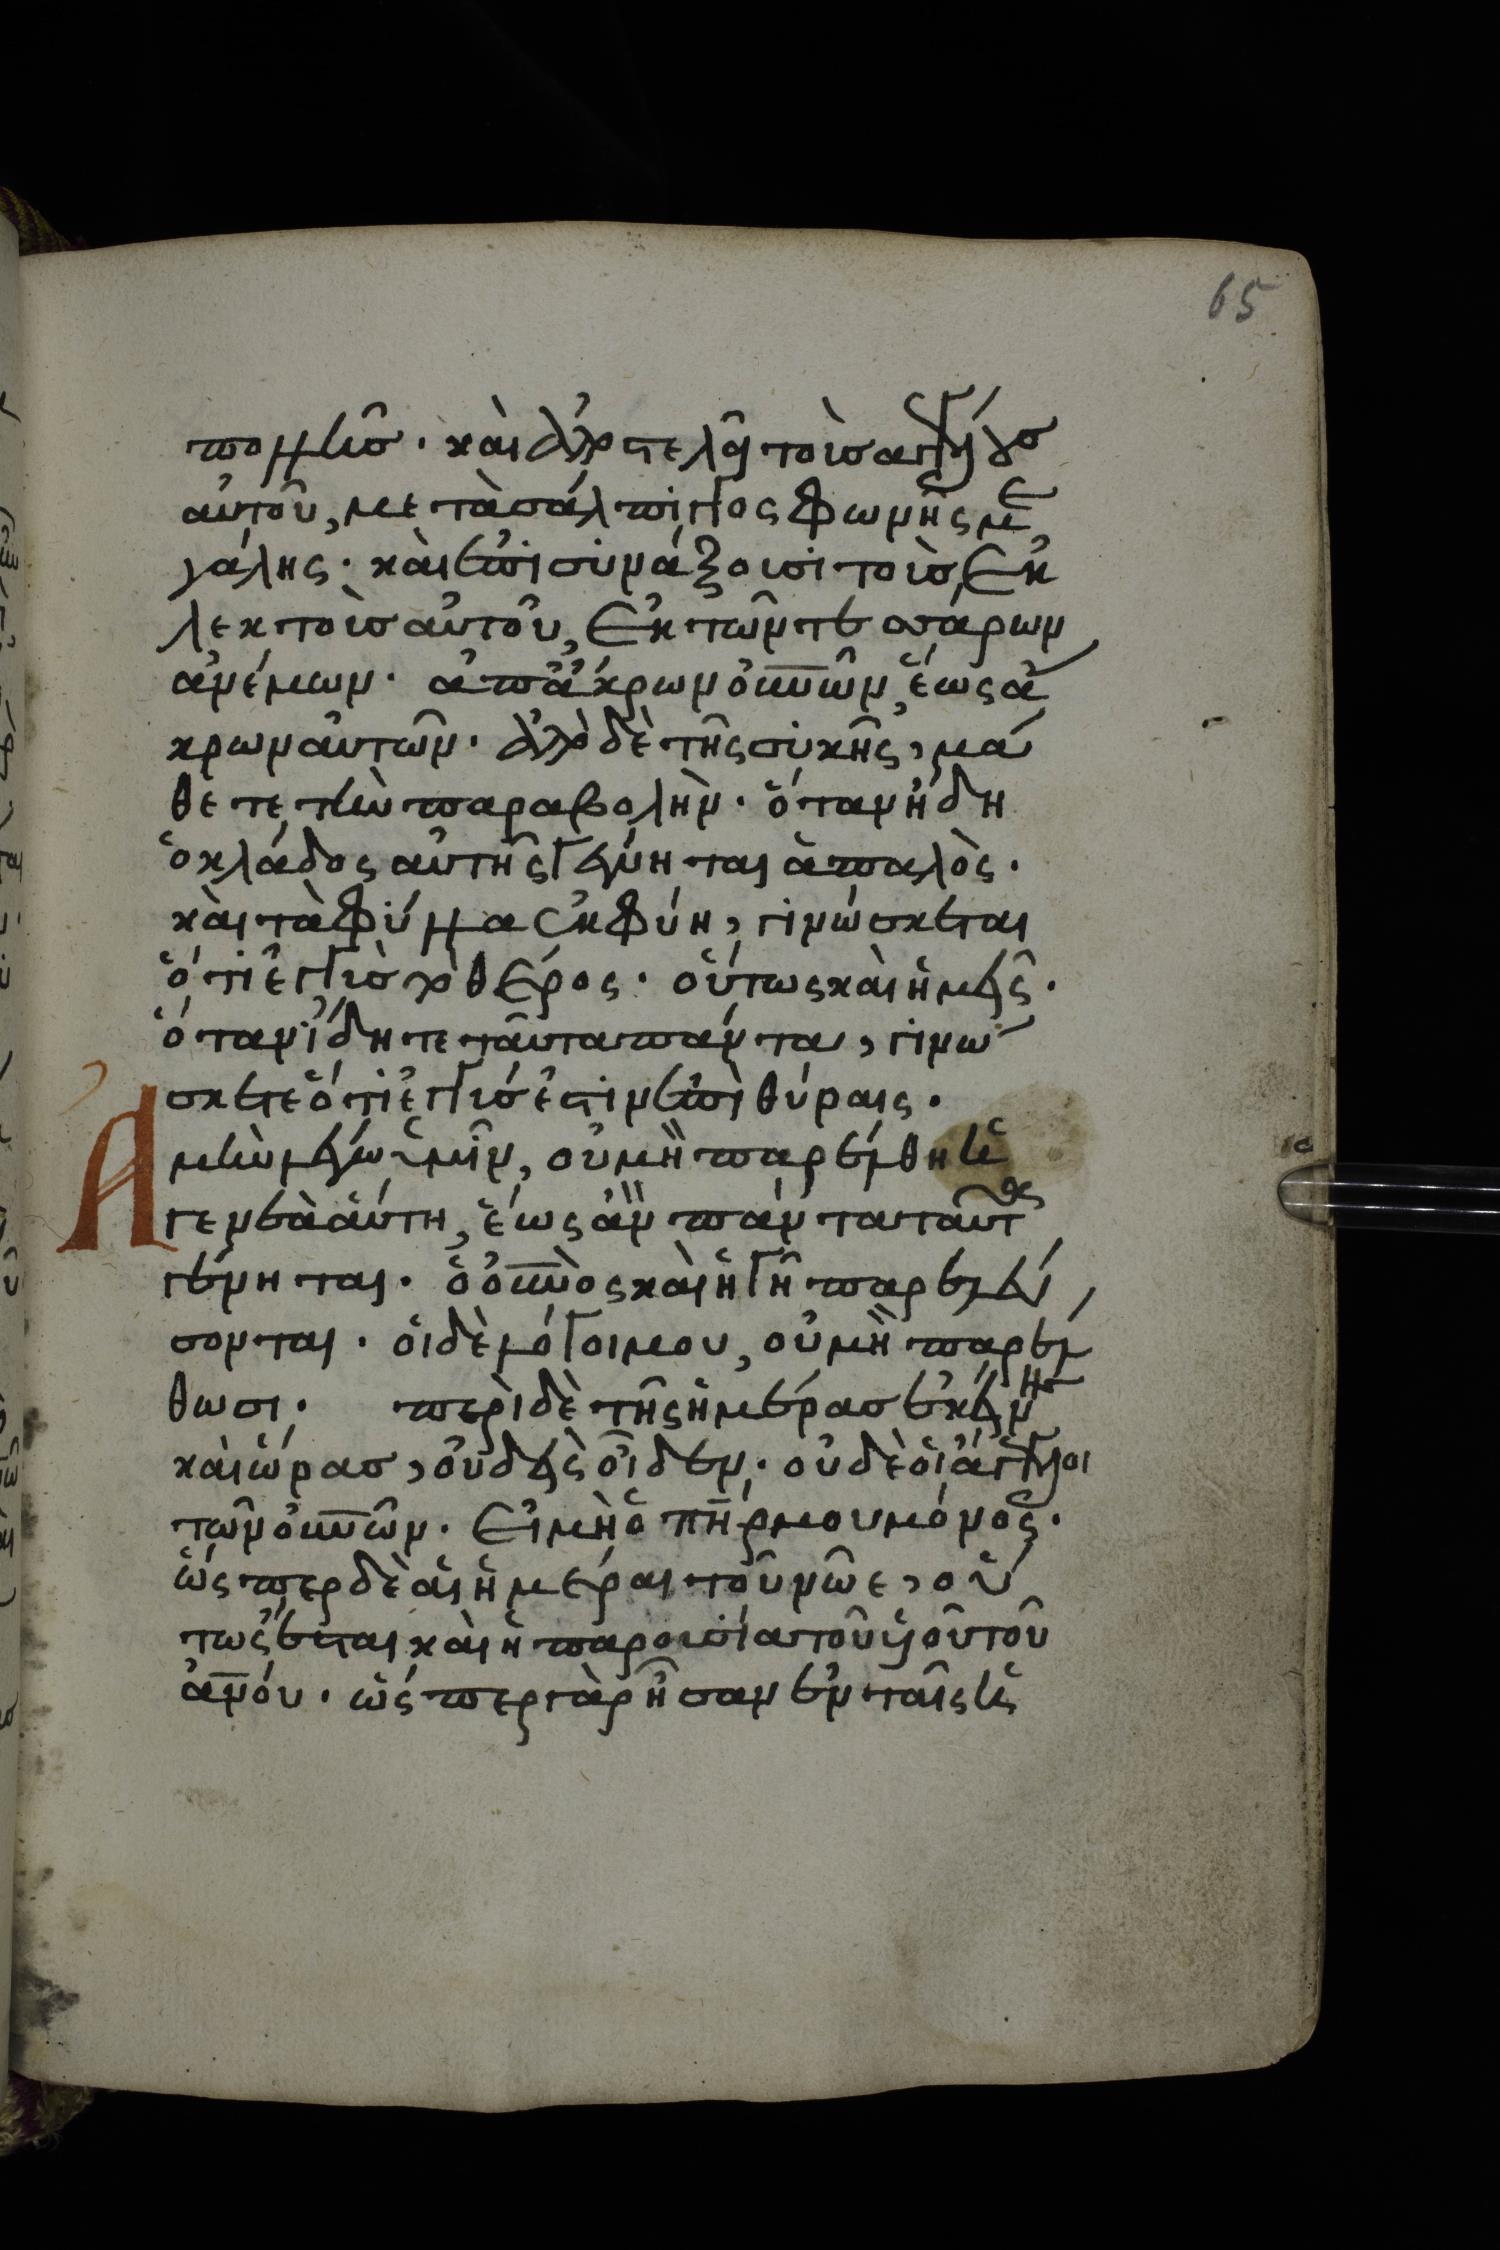 65
πολλῆς. καὶ ἀποστελεῖ τοὺς ἀγγέλους
αὐτοῦ, μετὰ σάλπιγγος φωνῆς με
γάλης. καὶ ἐπισυνάξουσι τοὺς ἐκ
λεκτοὺς αὐτοῦ, ἐκ τῶν τεσσάρων
ἀνέμων. ἀπἄκρων οὐνῶν, ἕως ἄ
κρων αὐτῶν. ἀπὸ δὲ τῆς συκῆς, μά
θετε τὴν παραβολήν. ὅταν ἤδη
ὁ κλάδος αὐτῆς γένηται ἁπαλὸς.
καὶ τὰ φύλλα ἐκφύη, γινώσκεται
ὅτι ἐγγὺς τὸ θέρος. οὕτως καὶ ὑμεῖς.
ὅταν ἴδητε ταῦτα πάντα, γινώ
σκετε ὅτι ἐγγύς ἐστιν ἐπὶ θύραις.
Ἀμὴν λέγω ὑμῖν, οὐ μὴ παρέλθη ἡ
γενεὰ αὕτη, ἕως ἂν πάντα ταῦτα
γένηται. ὁ οὐνὸς καὶ ἡ γῆ παρελεύ
σονται. οἱ δὲ λόγοι μου, οὐ μὴ παρέλ
θωσι. περὶ δὲ τῆς ἡμέρας ἐκείνης
καὶ ὥρας, οὐδεὶς οἶδεν. οὐδὲ οἱ ἄγγελοι
τῶν οὐνῶν. εἰ μὴ ὁ πηρ μου μόνος.
ὥσπερ δὲ αἱ ἡμέραι τοῦ νῶε, οὕ
τως ἔσται καὶ ἡ παρουσία τοῦ υἱοῦ τοῦ
ἀνου. ὥσπερ γὰρ ἦσαν ἐν ταῖς ἡ